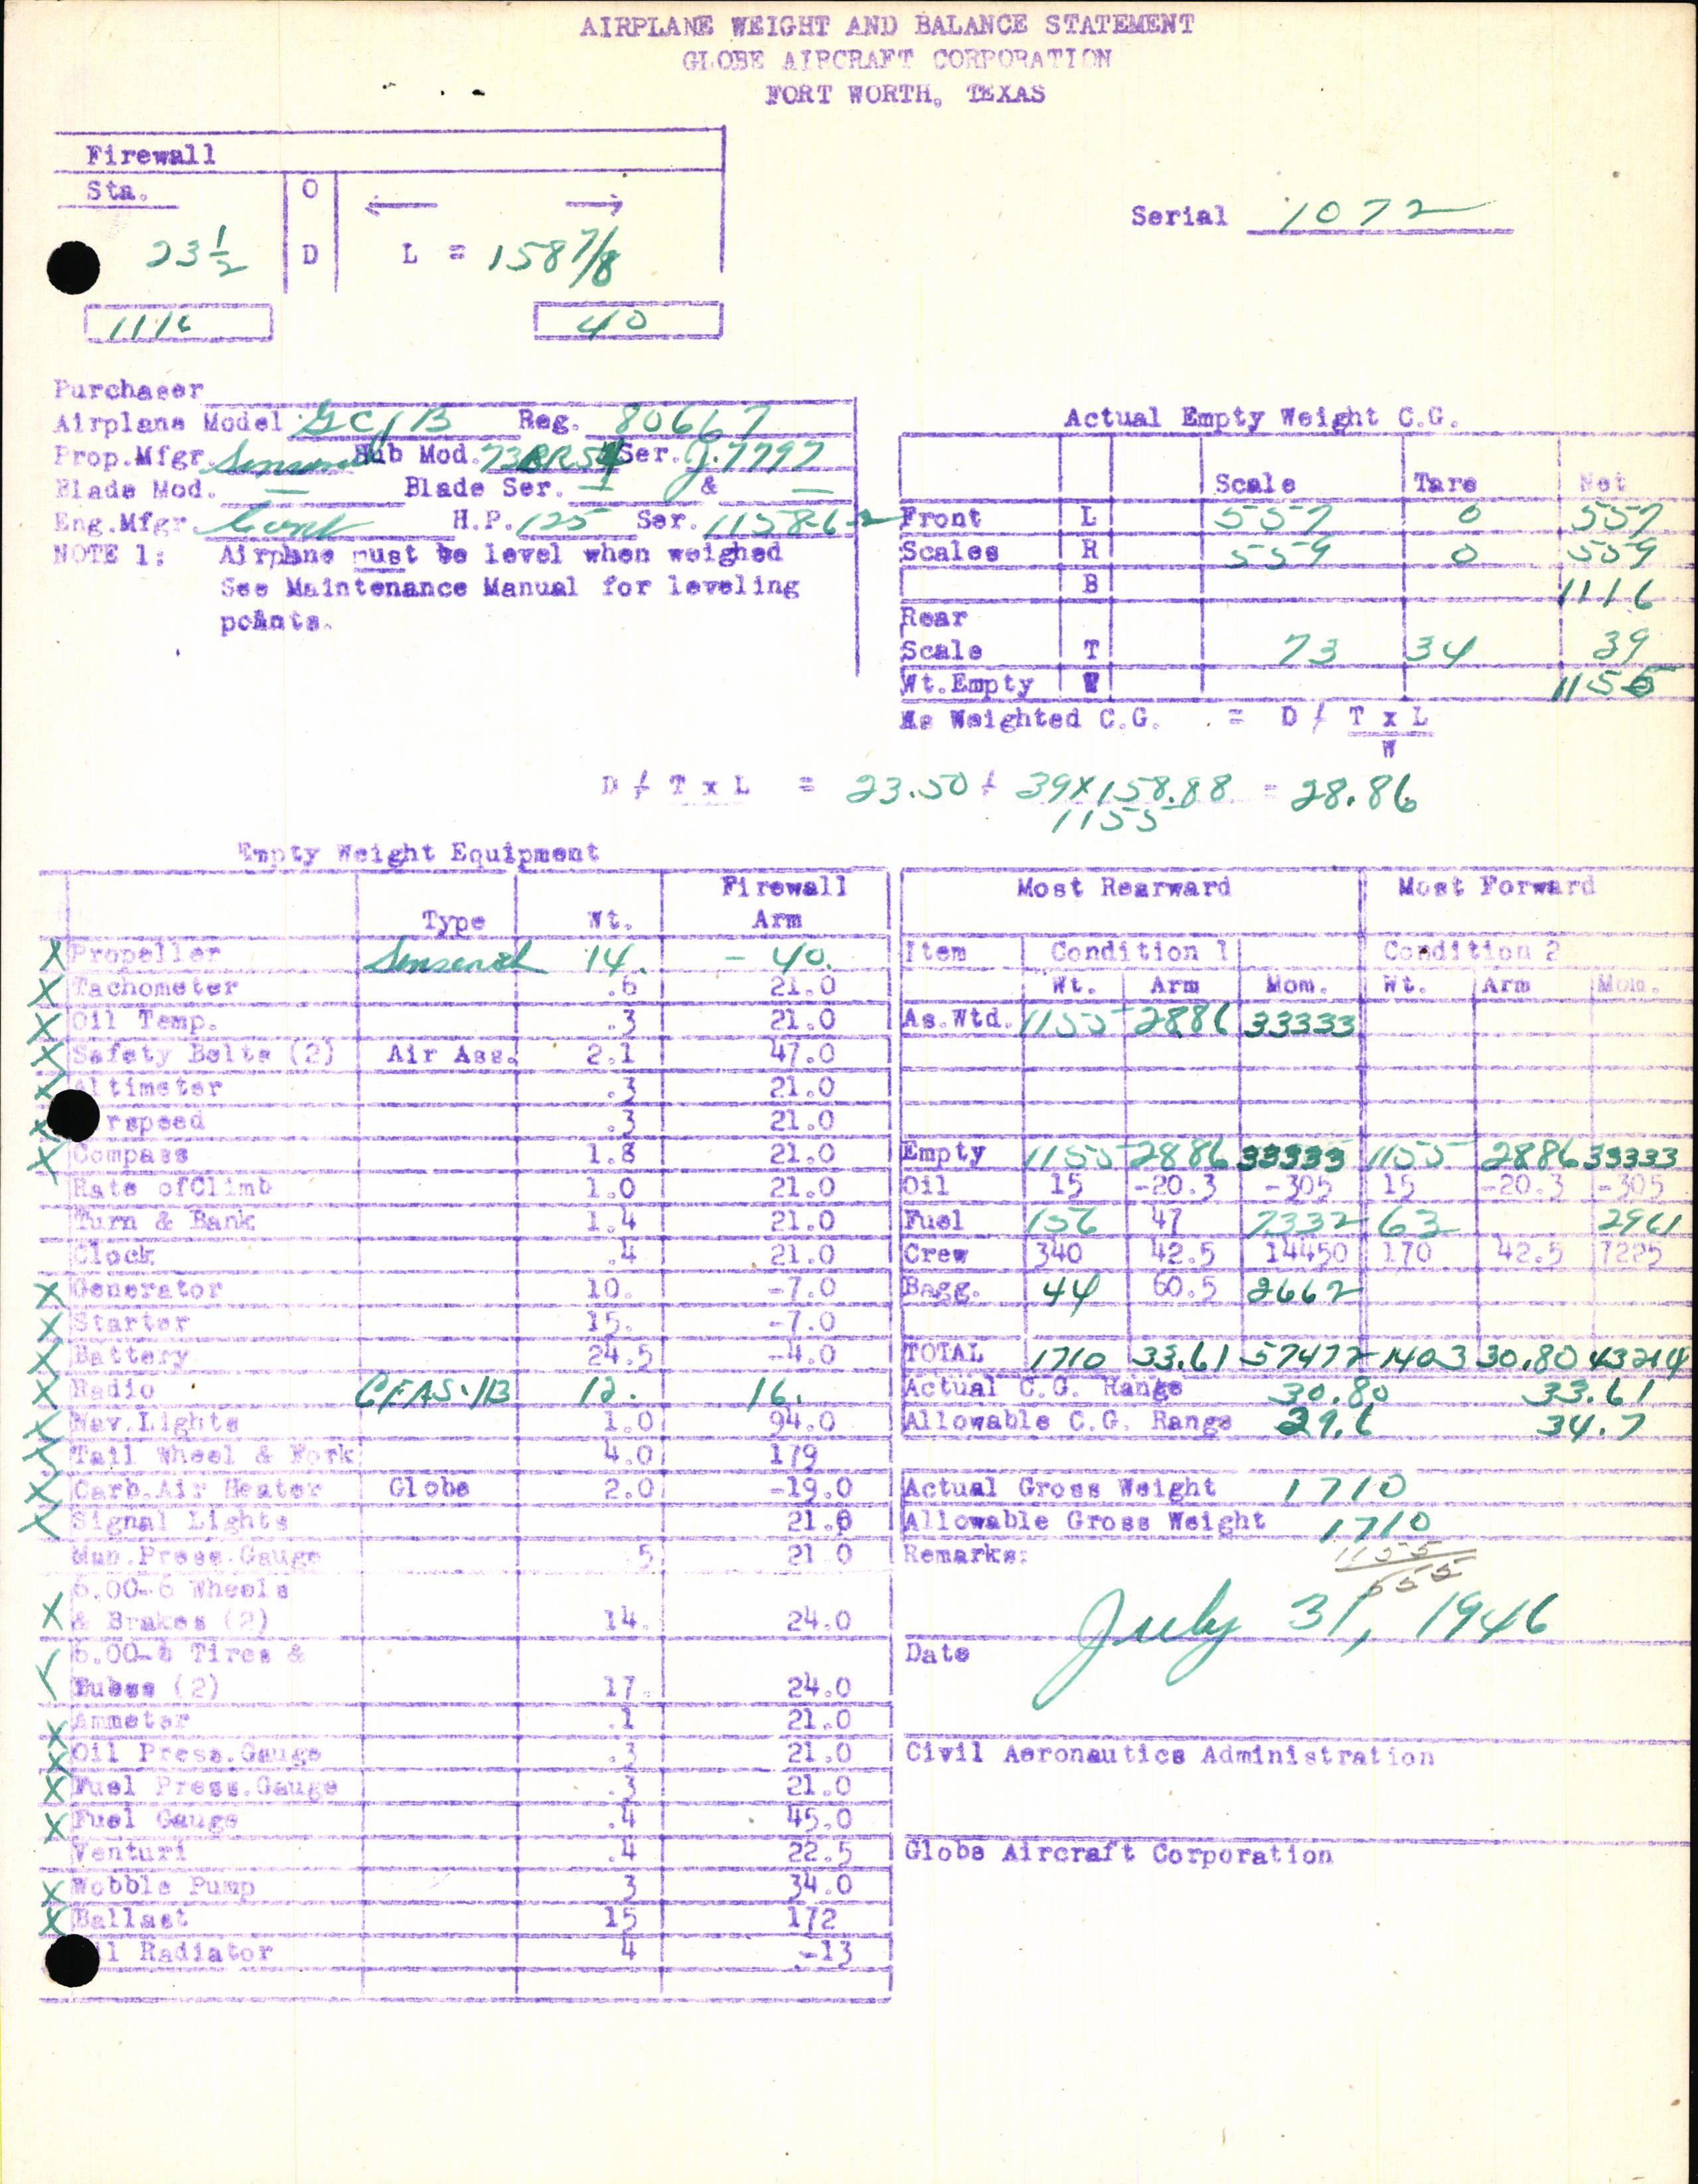 AIRPLANE WEIGHT AND BALANCE STATEMENT
GLOBE AIRCRAFT CORPORATION
FORT WORTH, TEXAS
Firewall
Sta. O ← →
23 1/2 D L = 158 7/8
1116 40
Serial 1072
Purchaser
Airplane Model GC1B Reg. 80667
Prop.Mfgr. Hub Mod. Ser. J.7797
Blade Mod. — Blade Ser. — & —
Eng.Mfgr. Cont H.P. 125 Ser. 11586-2
NOTE 1: Airplane must be level when weighed
See Maintenance Manual for leveling
points.
Actual Empty Weight C.G.
Scale Tare Net
Front L 557 0 557
Scales R 559 0 559
B 1116
Rear
Scale T 73 34 39
Wt.Empty W 1155
As Weighted C.G. = D / T x L
W
D / T x L = 23.50 + 39 x 158.88 = 28.86
1155
Empty Weight Equipment
Type Wt. Firewall Arm
X Propeller Sensenich 14. -40.
X Tachometer .6 21.0
X Oil Temp. .3 21.0
X Safety Belts (2) Air Ass. 2.1 47.0
X Altimeter .3 21.0
X rspeed .3 21.0
X Compass 1.8 21.0
Rate ofClimb 1.0 21.0
Turn & Bank 1.4 21.0
Clock .4 21.0
X Generator 10. -7.0
X Starter 15. -7.0
X Battery 24.5 -4.0
X Radio 12. 16.
X Nav.Lights 1.0 94.0
X Tail Wheel & Fork 4.0 179
X Carb.Air Heater Globe 2.0 -19.0
X Signal Lights 21.0
Man.Press.Gauge .5 21.0
6.00-6 Wheels
X & Brakes (2) 14. 24.0
6.00-6 Tires &
Tubes (2) 17. 24.0
X Ammeter .1 21.0
X Oil Press.Gauge .3 21.0
X Fuel Press.Gauge .3 21.0
X Fuel Gauge .4 45.0
Venturi .4 22.5
X Wobble Pump 3 34.0
X Ballast 15 172
il Radiator 4 -13
Most Rearward Most Forward
Item Condition 1 Condition 2
Wt. Arm Mom. Wt. Arm Mom.
As.Wtd. 1155 2886 33333
Empty 1155 2886 33333 1155 2886 33333
Oil 15 -20.3 -305 15 -20.3 -305
Fuel 156 47 7332 63 2961
Crew 340 42.5 14450 170 42.5 7225
Bagg. 44 60.5 2662
TOTAL 1710 33.61 57472 1403 30.80 43214
Actual C.G. Range 30.80 33.61
Allowable C.G. Range 29.6 34.7
Actual Gross Weight 1710
Allowable Gross Weight 1710
Remarks: 1155
555
July 31, 1946
Date
Civil Aeronautics Administration
Globe Aircraft Corporation